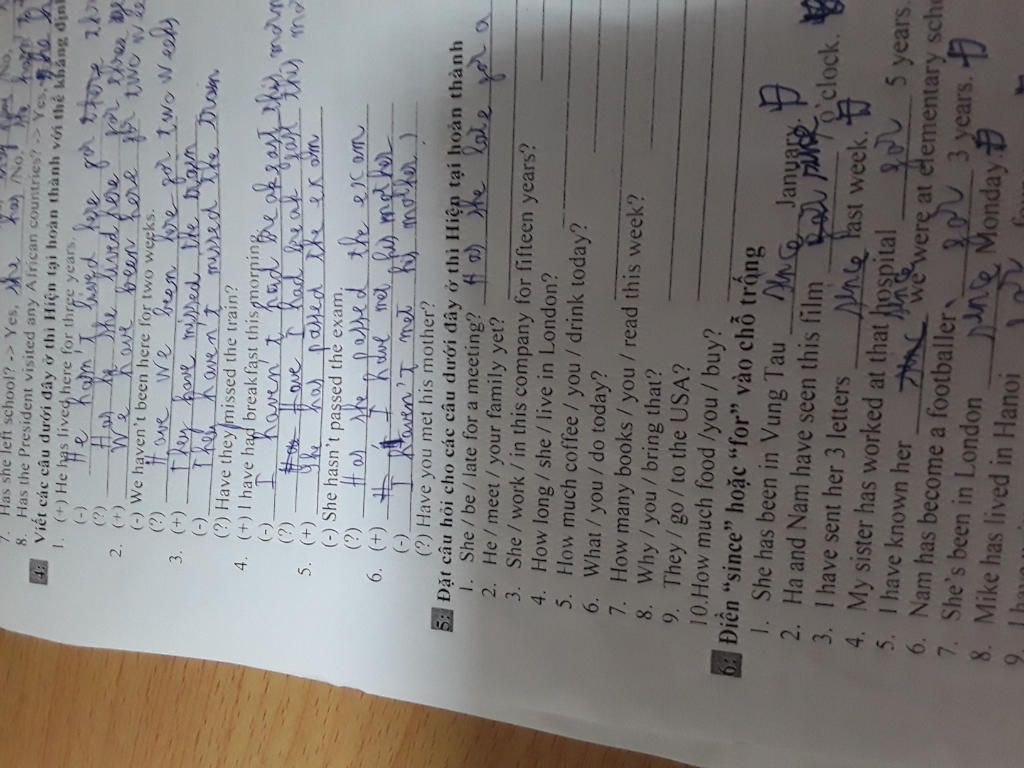 7. Has she left school? -> Yes, she has No,
8. Has the President visited any African countries? -> Yes, he
4: Viết các câu dưới đây ở thì Hiện tại hoàn thành với thể khẳng định
1. (+) He has lived here for three years.
(-) He hasn't lived here for
(?) Has he she lived here for three
2. (+) We have been here for two
(-) We haven't been here for two weeks.
(?) Have we been here for two weeks
3. (+) They have missed the train
(-) They haven't missed the train
(?) Have they missed the train?
4. (+) I have had breakfast this morning.
(-) I haven't had breakfast this morn
(?) Have I had this
5. (+) She has passed the exam
(-) She hasn't passed the exam.
(?) Has she passed the exam
6. (+) I have met his mother
(-) I haven't met his mother
(?) Have you met his mother?
5: Đặt câu hỏi cho các câu dưới đây ở thì Hiện tại hoàn thành
1. She / be / late for a meeting? Has she late for a
2. He / meet / your family yet?
3. She / work / in this company for fifteen years?
4. How long / she / live in London?
5. How much coffee / you / drink today?
6. What / you / do today?
7. How many books / you / read this week?
8. Why / you / bring that?
9. They / go / to the USA?
10. How much food /you / buy?
6: Điền “since” hoặc “for” vào chỗ trống
1. She has been in Vung Tau since January.
2. Ha and Nam have seen this film 7 o'clock.
3. I have sent her 3 letters since last week.
4. My sister has worked at that hospital for 5 years.
5. I have known her since we were at elementary scho
6. Nam has become a footballer for 3 years.
7. She's been in London since Monday.
8. Mike has lived in Hanoi for
9. I have